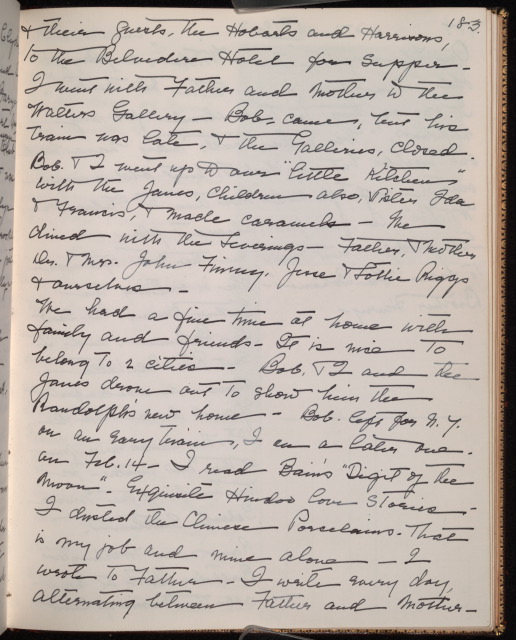 183.
& their guests, the Hobarts and Harrisons,
to the Belvedere Hotel for Supper –
I went with Father and Mother to the
Walters Gallery – Bob, came, but his
train was late, & the Galleries, closed.
Bob. & I went up to our "little Kitchen"
with the Janes, Children also, Sister Ida
& Francis, & made caramels – We
dined with the Leverings – Father, & Mother
Dr. & Mrs. John Finney, Jesse & Lottie Riggs
& ourselves –
We had a fine time at home with
family and friends – It is nice to
belong to 2 cities – Bob, & I and the
Janes drove out to show him the
Randolph's new home – Bob. left for N.Y.
on an early train, I on a later one.
on Feb. 14 – I read Bain's "Digit of the
Moon". Exquisite Hindoo love Stories –
I dusted the Chinese Porcelains. That
is my job and mine alone – I
wrote to Father – I write every day,
alternating between Father and Mother –